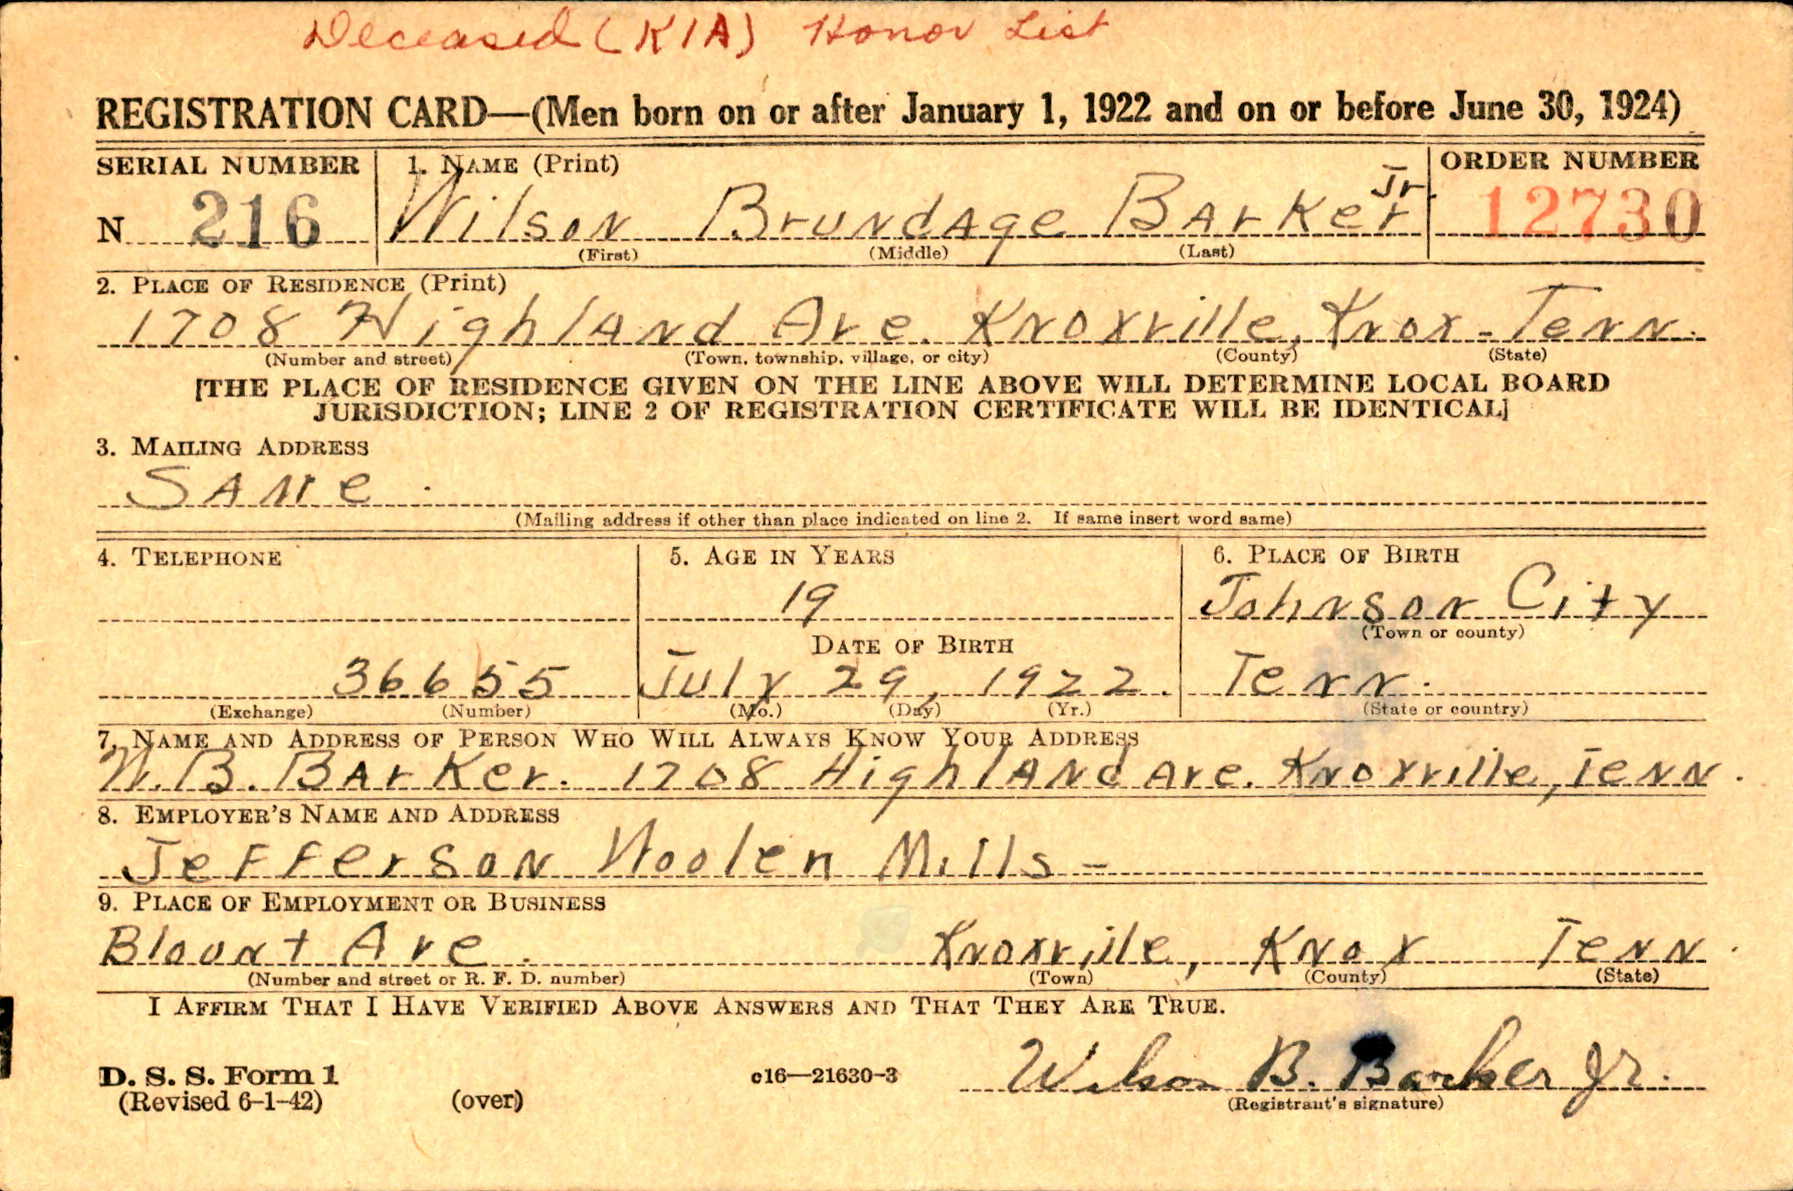 Deceased (KIA) Honor List
REGISTRATION CARD—(Men born on or after January 1, 1922 and on or before June 30, 1924)
SERIAL NUMBER 1. NAME (Print) ORDER NUMBER
N 216 Wilson Brundage Barker Jr. 12730
(First) (Middle) (Last)
2. PLACE OF RESIDENCE (Print)
1708 Highland Ave. Knoxville, Knox - Tenn.
(Number and street) (Town, township, village, or city) (County) (State)
[THE PLACE OF RESIDENCE GIVEN ON THE LINE ABOVE WILL DETERMINE LOCAL BOARD
JURISDICTION; LINE 2 OF REGISTRATION CERTIFICATE WILL BE IDENTICAL]
3. MAILING ADDRESS
SAME .
(Mailing address if other than place indicated on line 2. If same insert word same)
4. TELEPHONE 5. AGE IN YEARS 6. PLACE OF BIRTH
19 Johnson City
DATE OF BIRTH (Town or county)
36655 July 29, 1922. Tenn.
(Exchange) (Number) (Mo.) (Day) (Yr.) (State or country)
7. NAME AND ADDRESS OF PERSON WHO WILL ALWAYS KNOW YOUR ADDRESS
W. B. Barker. 1708 Highland Ave. Knoxville, Tenn.
8. EMPLOYER'S NAME AND ADDRESS
Jefferson Woolen Mills -
9. PLACE OF EMPLOYMENT OR BUSINESS
Blount Ave. Knoxville, Knox Tenn.
(Number and street or R. F. D. number) (Town) (County) (State)
I AFFIRM THAT I HAVE VERIFIED ABOVE ANSWERS AND THAT THEY ARE TRUE.
D. S. S. Form 1 c16—21630-3 Wilson B. Barker Jr.
(Revised 6-1-42) (over) (Registrant's signature)